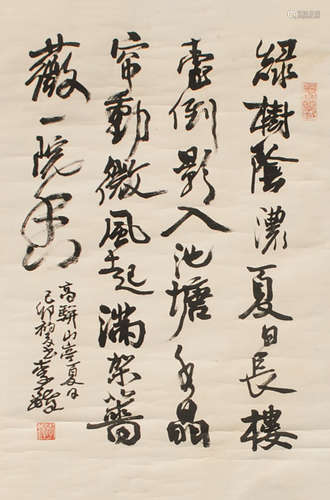 緑樹陰濃夏日長樓
臺倒影入池塘水晶
帘動微風起滿架薔
薇一院香
高駢山亭夏日
己卯 李